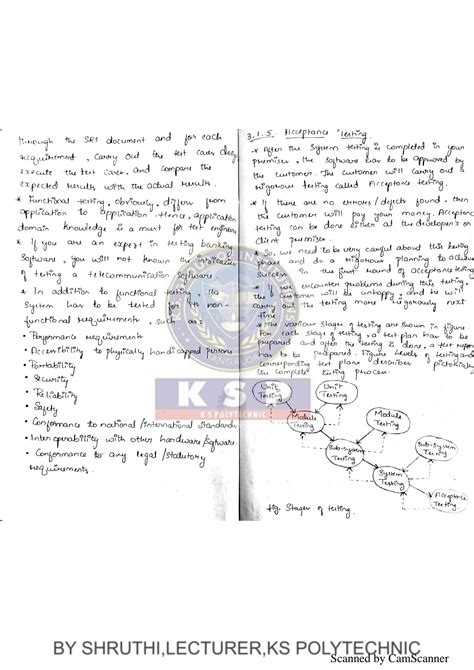 through the SRS document and for each
requirement, carry out the test cases
execute the test cases, and compare the
expected results with the actual results.
* Functional testing, obviously, differ from
application to application. Hence, application
domain knowledge is a must for test engineers
* If you are an expert in testing banking
Software, you will not known the
of testing a telecommunication software.
* In addition to functional testing, the
System has to be tested for its non-
functional requirements, such as:
• Performance requirement
• Accessibility to physically handicapped persons
• Portability
• Security
• Reliability
• Safety
• Conformance to national/international standards
• Interoperability with other hardware/software
• Conformance to any legal/statutory
requirements.
3.1.5. Acceptance Testing
* After the System testing is completed in your
premises, the software has to be approved by
the customer. The customer will carry out a
rigorous testing called Acceptance testing.
* If there are no errors/defects found, then
the customer will pay your money. Acceptance
testing can be done either at the developer's or
client premises.
* So, we need to be very careful about this testing
phase and do a rigorous planning to achieve
success in the first round of acceptance testing
* If we encounter problems during this testing,
the customer will be unhappy and he will
carry out the testing more rigorously next
time
* The various stages of testing are shown in figure
For each stage of testing, a test plan has to be
prepared and after the testing is done, a test report
has to be prepared. Figure levels of testing and
corresponding test plans describes pictorially
the complete testing process.
Unit
Testing
Unit
Testing
Module
Testing
Module
Testing
Sub-System
Testing
Sub-System
Testing
System
Testing
Acceptance
Testing
fig. Stages of testing.
KSP
K S POLYTECHNIC
BY SHRUTHI,LECTURER,KS POLYTECHNIC
Scanned by CamScanner